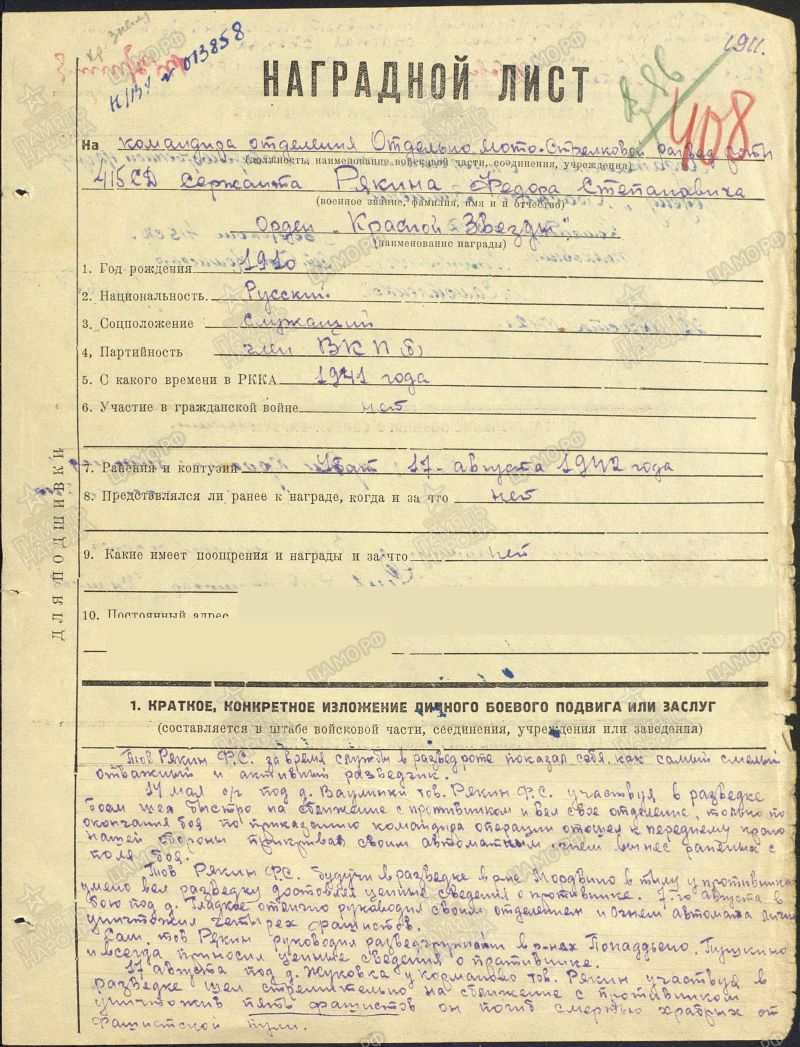 1911.
кр. Знамя
н/137 № 013858
408
НАГРАДНОЙ ЛИСТ
На командира отделения Отдельно Мото-Стрелковой развед роты
(должность, наименование войсковой части, соединения, учреждения)
415 СД Сержанта Рякина Федора Степановича
(военное звание, фамилия, имя и отчество)
Орден „Красной Звезды"
(наименование награды)
1. Год рождения 1910
2. Национальность. Русский.
3. Соцположение служащий
4, Партийность член ВКП(б)
5. С какого времени в РККА 1941 года
6. Участие в гражданской войне нет
7. Ранения и контузии Убит 17 - августа 1942 года
8. Представлялся ли ранее к награде, когда и за что нет
9. Какие имеет поощрения и награды и за что нет
10. Постоянный адрес
ДЛЯ ПОДШИВКИ
1. КРАТКОЕ, КОНКРЕТНОЕ ИЗЛОЖЕНИЕ ЛИЧНОГО БОЕВОГО ПОДВИГА ИЛИ ЗАСЛУГ
(составляется в штабе войсковой части, соединения, учреждения или заведения)
Тов. Рякин Ф.С. за время службы в разведроте показал себя, как самый смелый
отважный и активный разведчик.
17 мая с/г под д. Ваулинки тов. Рякин Ф.С. участвуя в разведке
боем шел быстро на сближение с противником и вел свое отделение, только по
окончания боя по приказанию командира операции отошел к переднему краю
нашей стороны прикрывая своим автоматным огнем вынес раненых с
поля боя.
Тов Рякин Ф.С. будучи в разведке в р-не Мордвино в тылу у противника
умело вел разведку доставлял ценные сведения о противнике. 7-го августа в
бою под д. Гладкое отлично руководил своим отделением и огнем автомата лично
уничтожил четырех фашистов.
Сам тов Рякин руководил разведгруппами в р-нах Пушкино
и всегда приносил ценные сведения о противнике.
17 августа под д. Жуковка у Корманово тов. Рякин участвуя в
разведке шел стремительно на сближение с противником
уничтожив пять фашистов он погиб смертью храбрых от
фашистской пули.